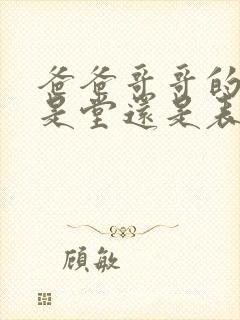 爸爸哥哥的
是堂还是表
顾敏